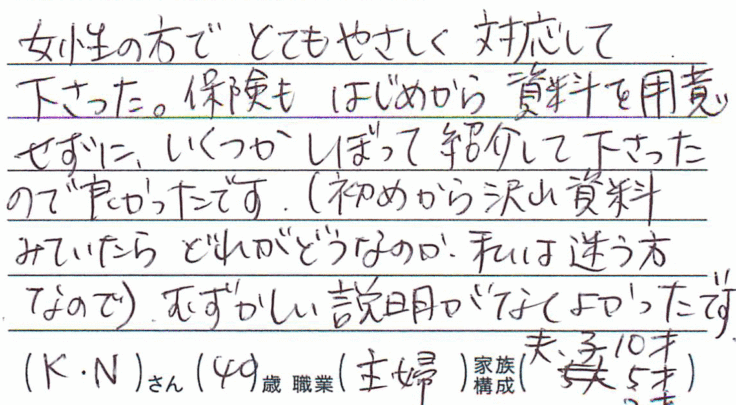 女性の方で とてもやさしく 対応して
下さった。保険も はじめから 資料を用意
せずに、いくつか しぼって 紹介して下さった
ので良かったです.(初めから沢山資料
みていたら どれがどうなのか. 私は迷う方
なので) むずかしい説明がなくてよかったです
夫、子10才
(K・N)さん (49歳 職業(主婦)家族構成( 5才)